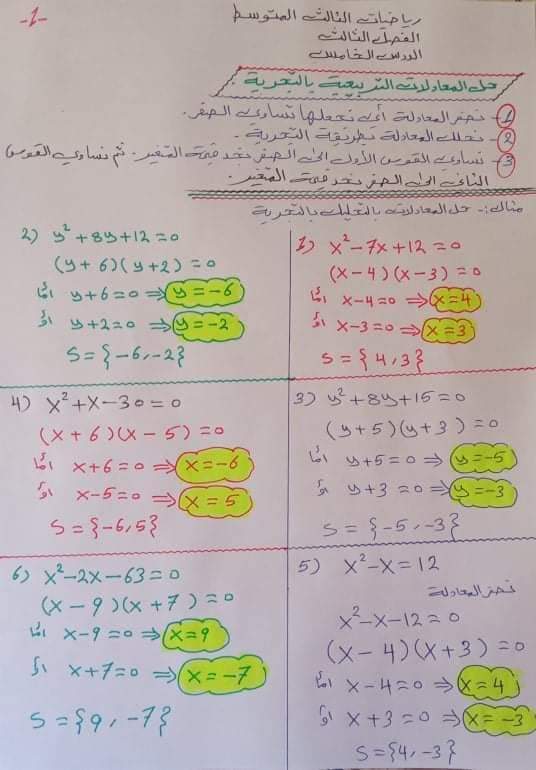 -1-
رياضيات الثالث المتوسط
الفصل الثالث
الدرس الخامس
حل المعادلات التربيعية بالتجربة.
1- نصفر المعادلة أي نجعلها تساوي الصفر.
2- نحلل المعادلة بطريقة التجربة.
3- نساوي القوس الأول الى الصفر نجد قيمة المتغير. ثم نساوي القوس
الثاني الى الصفر نجد قيمة المتغير.
مثال:- حل المعادلات بالتحليل بالتجربة
1) x²-7x+12=0
(x-4)(x-3)=0
امّا x-4=0 ⇒ x=4
أو x-3=0 ⇒ x=3
S={4,3}
2) y²+8y+12=0
(y+6)(y+2)=0
امّا y+6=0 ⇒ y=-6
أو y+2=0 ⇒ y=-2
S={-6,-2}
3) y²+8y+15=0
(y+5)(y+3)=0
امّا y+5=0 ⇒ y=-5
أو y+3=0 ⇒ y=-3
S={-5,-3}
4) x²+x-30=0
(x+6)(x-5)=0
امّا x+6=0 ⇒ x=-6
أو x-5=0 ⇒ x=5
S={-6,5}
5) x²-x=12
نصفر المعادلة
x²-x-12=0
(x-4)(x+3)=0
امّا x-4=0 ⇒ x=4
أو x+3=0 ⇒ x=-3
S={4,-3}
6) x²-2x-63=0
(x-9)(x+7)=0
امّا x-9=0 ⇒ x=9
أو x+7=0 ⇒ x=-7
S={9,-7}